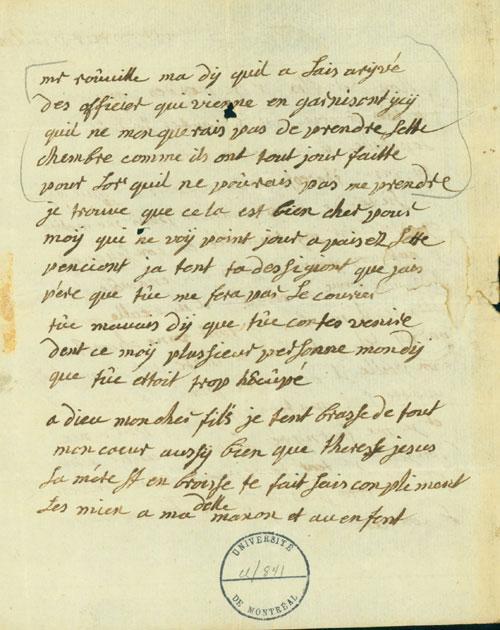 mr roûville ma dij quil a sais arijvé
des officier que vienne en garnisont ycij
quil ne monquerais pas de prendre sette
chembre comme ils ont tout jour faitte
pour lor quil ne poûrais pas me prendre
je trouve que cela est bien cher pour
moij qui ne voij point jour a paisez sette
penciont ja tent ta dessignont que jais
père que tûe me fera par le courier
tûe mauais dij que tûe contes venire
dent ce moij plussieur personne mon dij
que tûe ettoit trop hocûpé
a dieu mon cher fils je tent brasse de tout
mon coeur aussij bien que therese jesus
la mère st en broisse te fait sais conpliment
les mien a ma delle manon et au enfent
UNIVERSITÉ
U/841
DE MONTRÉAL